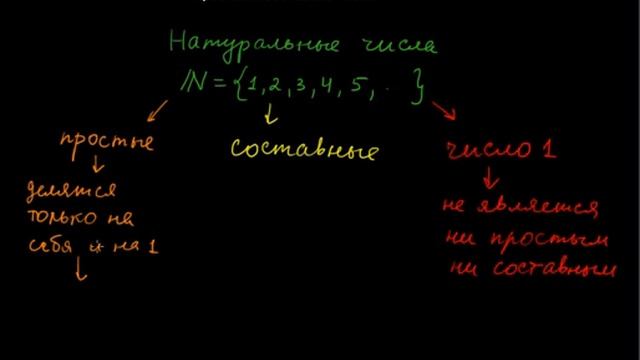 Натуральные числа
ℕ = {1, 2, 3, 4, 5, . . }
простые
составные
число 1
делятся
только на
себя и на 1
не является
ни простым
ни составным